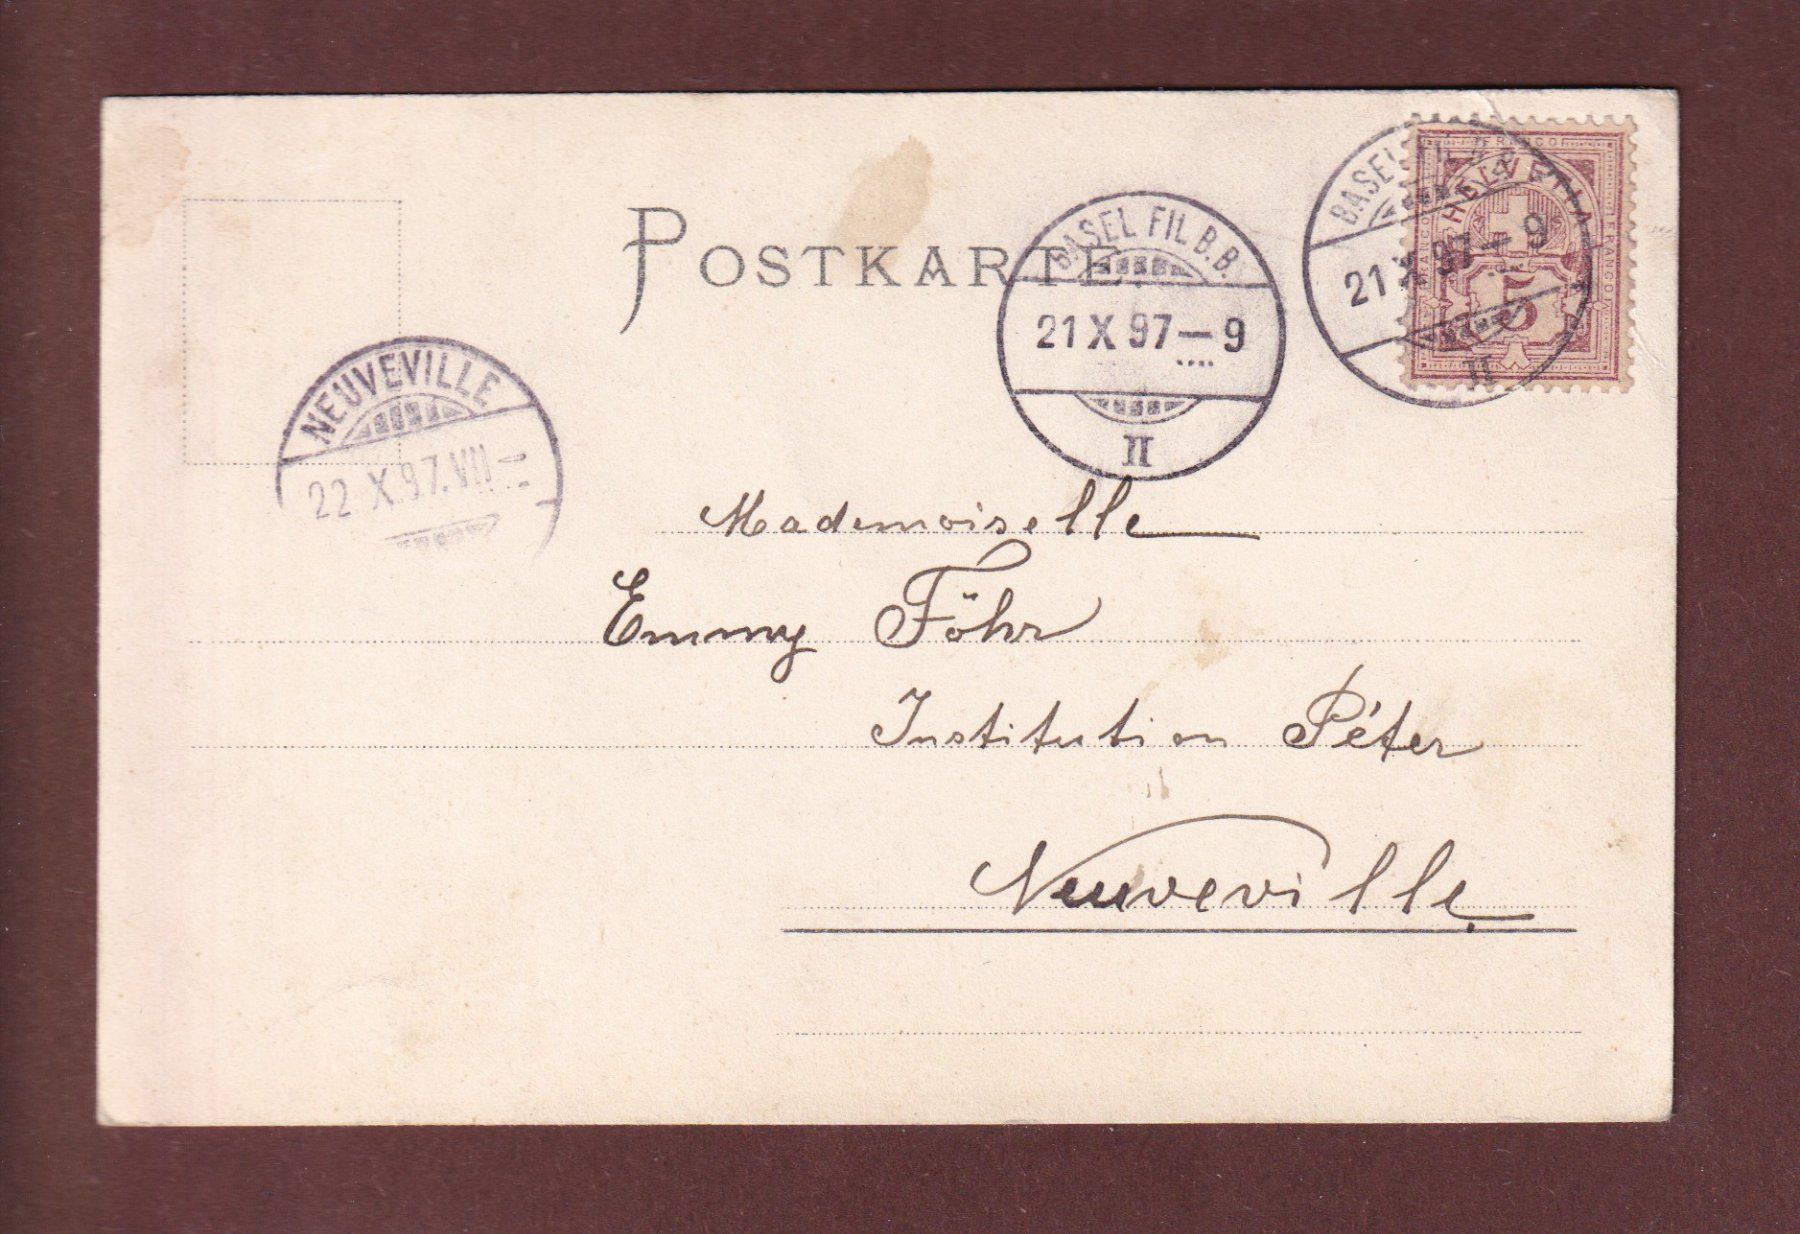 POSTKARTE
BASEL FIL. B.B.
21 X 97 — 9
II
BASEL FIL. B.B.
21 X 97 — 9
II
FRANCO
HELVETIA
5
NEUVEVILLE
22 X.97.VII —
Mademoiselle
Emmy Föhr
Institution Péter
Neuveville